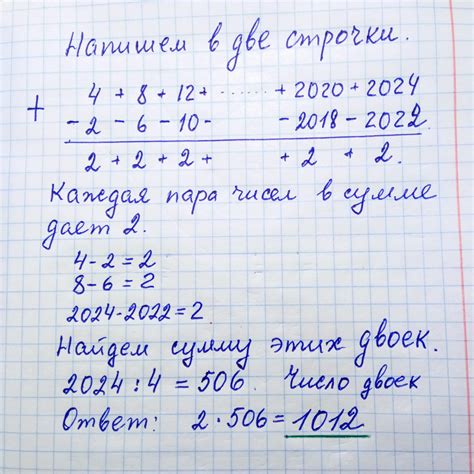 Напишем в две строчки.
+ 4 + 8 + 12 + ...... + 2020 + 2024
- 2 - 6 - 10 - - 2018 - 2022
2 + 2 + 2 + + 2 + 2.
Каждая пара чисел в сумме
дает 2.
4 - 2 = 2
8 - 6 = 2
2024 - 2022 = 2
Найдем сумму этих двоек.
2024 : 4 = 506. Число двоек
Ответ: 2 · 506 = 1012